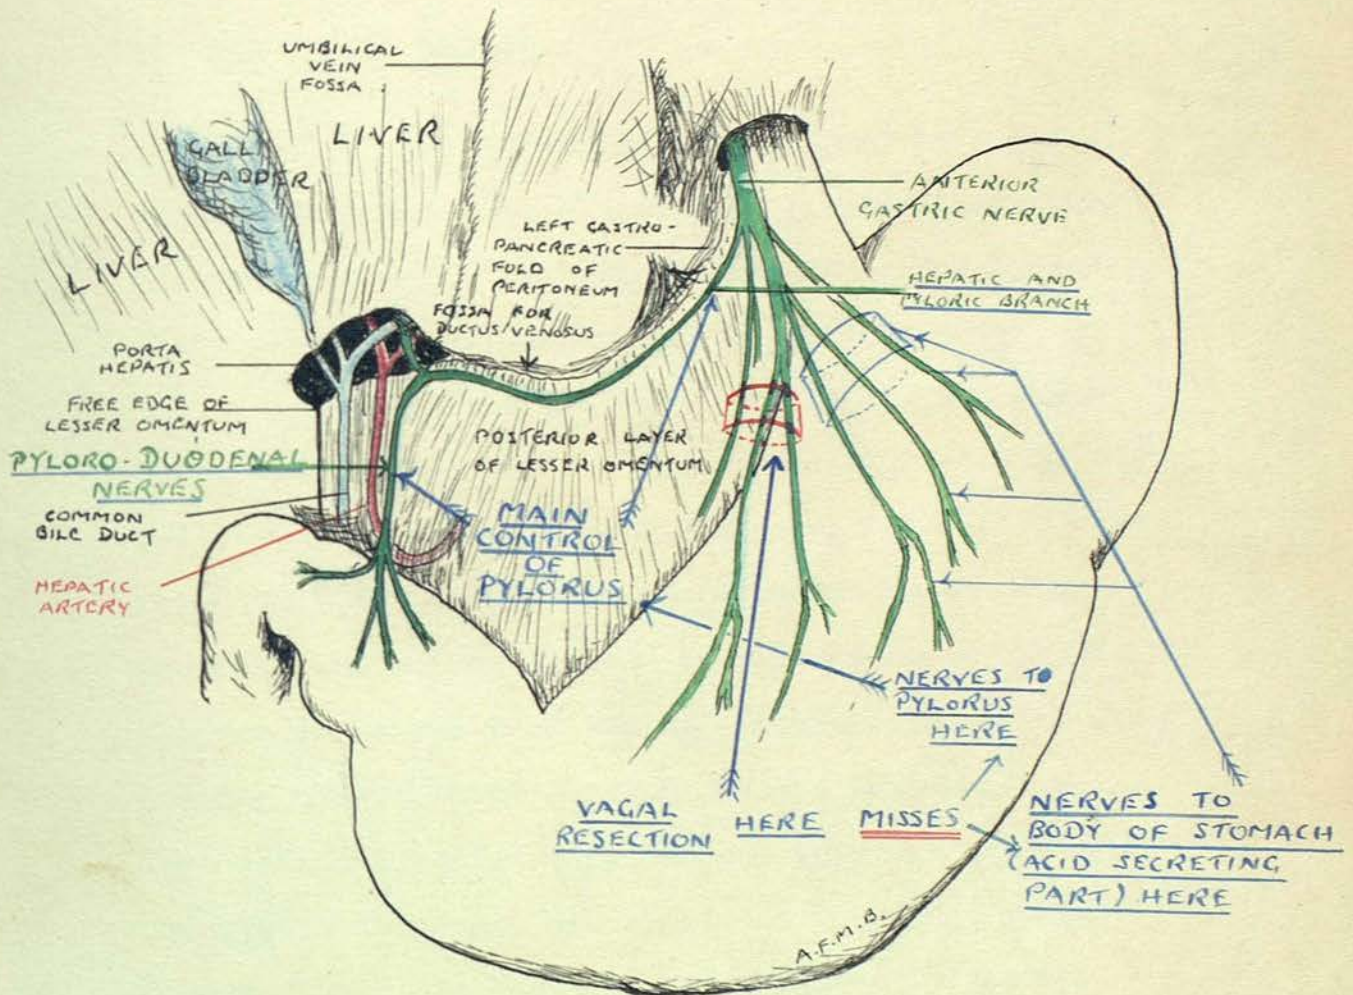 UMBILICAL
VEIN
FOSSA
LIVER
GALL
BLADDER
LIVER
ANTERIOR
GASTRIC NERVE
LEFT GASTRO-
PANCREATIC
FOLD OF
PERITONEUM
HEPATIC AND
PYLORIC BRANCH
FOSSA FOR
DUCTUS VENOSUS
PORTA
HEPATIS
FREE EDGE OF
LESSER OMENTUM
PYLORO-DUODENAL
NERVES
COMMON
BILE DUCT
HEPATIC
ARTERY
POSTERIOR LAYER
OF LESSER OMENTUM
MAIN
CONTROL
OF
PYLORUS
NERVES TO
PYLORUS
HERE
VAGAL
RESECTION HERE MISSES
NERVES TO
BODY OF STOMACH
(ACID SECRETING
PART) HERE
A.F.M.B.